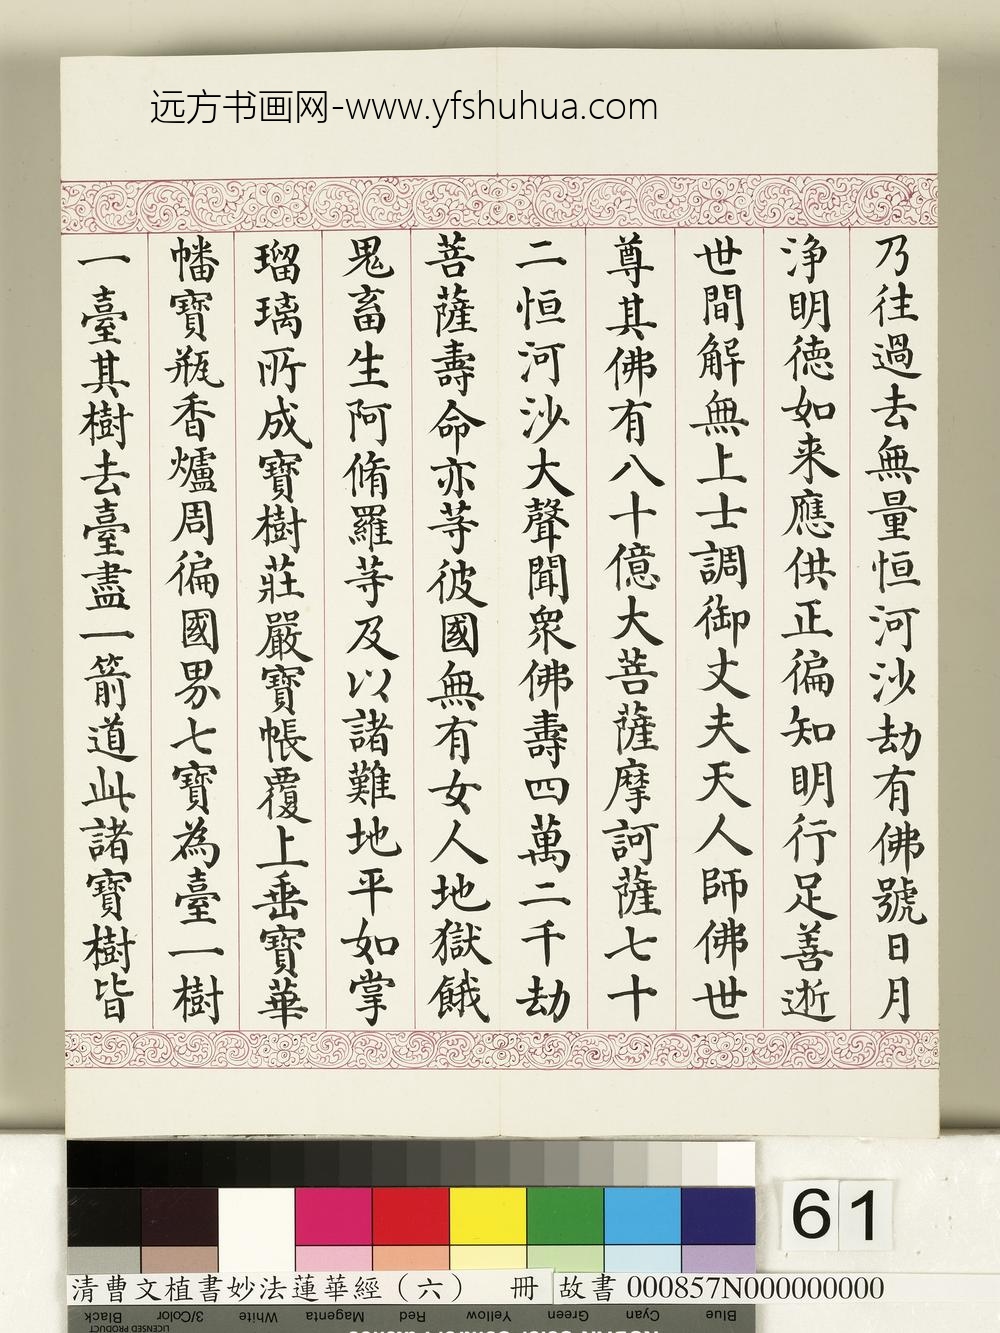 远方书画网-www.yfshuhua.com
乃往過去無量恒河沙劫有佛號日月
淨明德如来應供正徧知明行足善逝
世間解無上士調御丈夫天人師佛世
尊其佛有八十億大菩薩摩訶薩七十
二恒河沙大聲聞眾佛壽四萬二千劫
菩薩壽命亦等彼國無有女人地獄餓
鬼畜生阿脩羅等及以諸難地平如掌
瑠璃所成寶樹莊嚴寶帳覆上垂寶華
幡寶瓶香爐周徧國界七寶為臺一樹
一臺其樹去臺盡一箭道此諸寶樹皆
61
清曹文植書妙法蓮華經（六） 冊 故書 000857N000000000
Blue Cyan Green Yellow Red Magenta White 3/Color Black
LICENSED PRODUCT